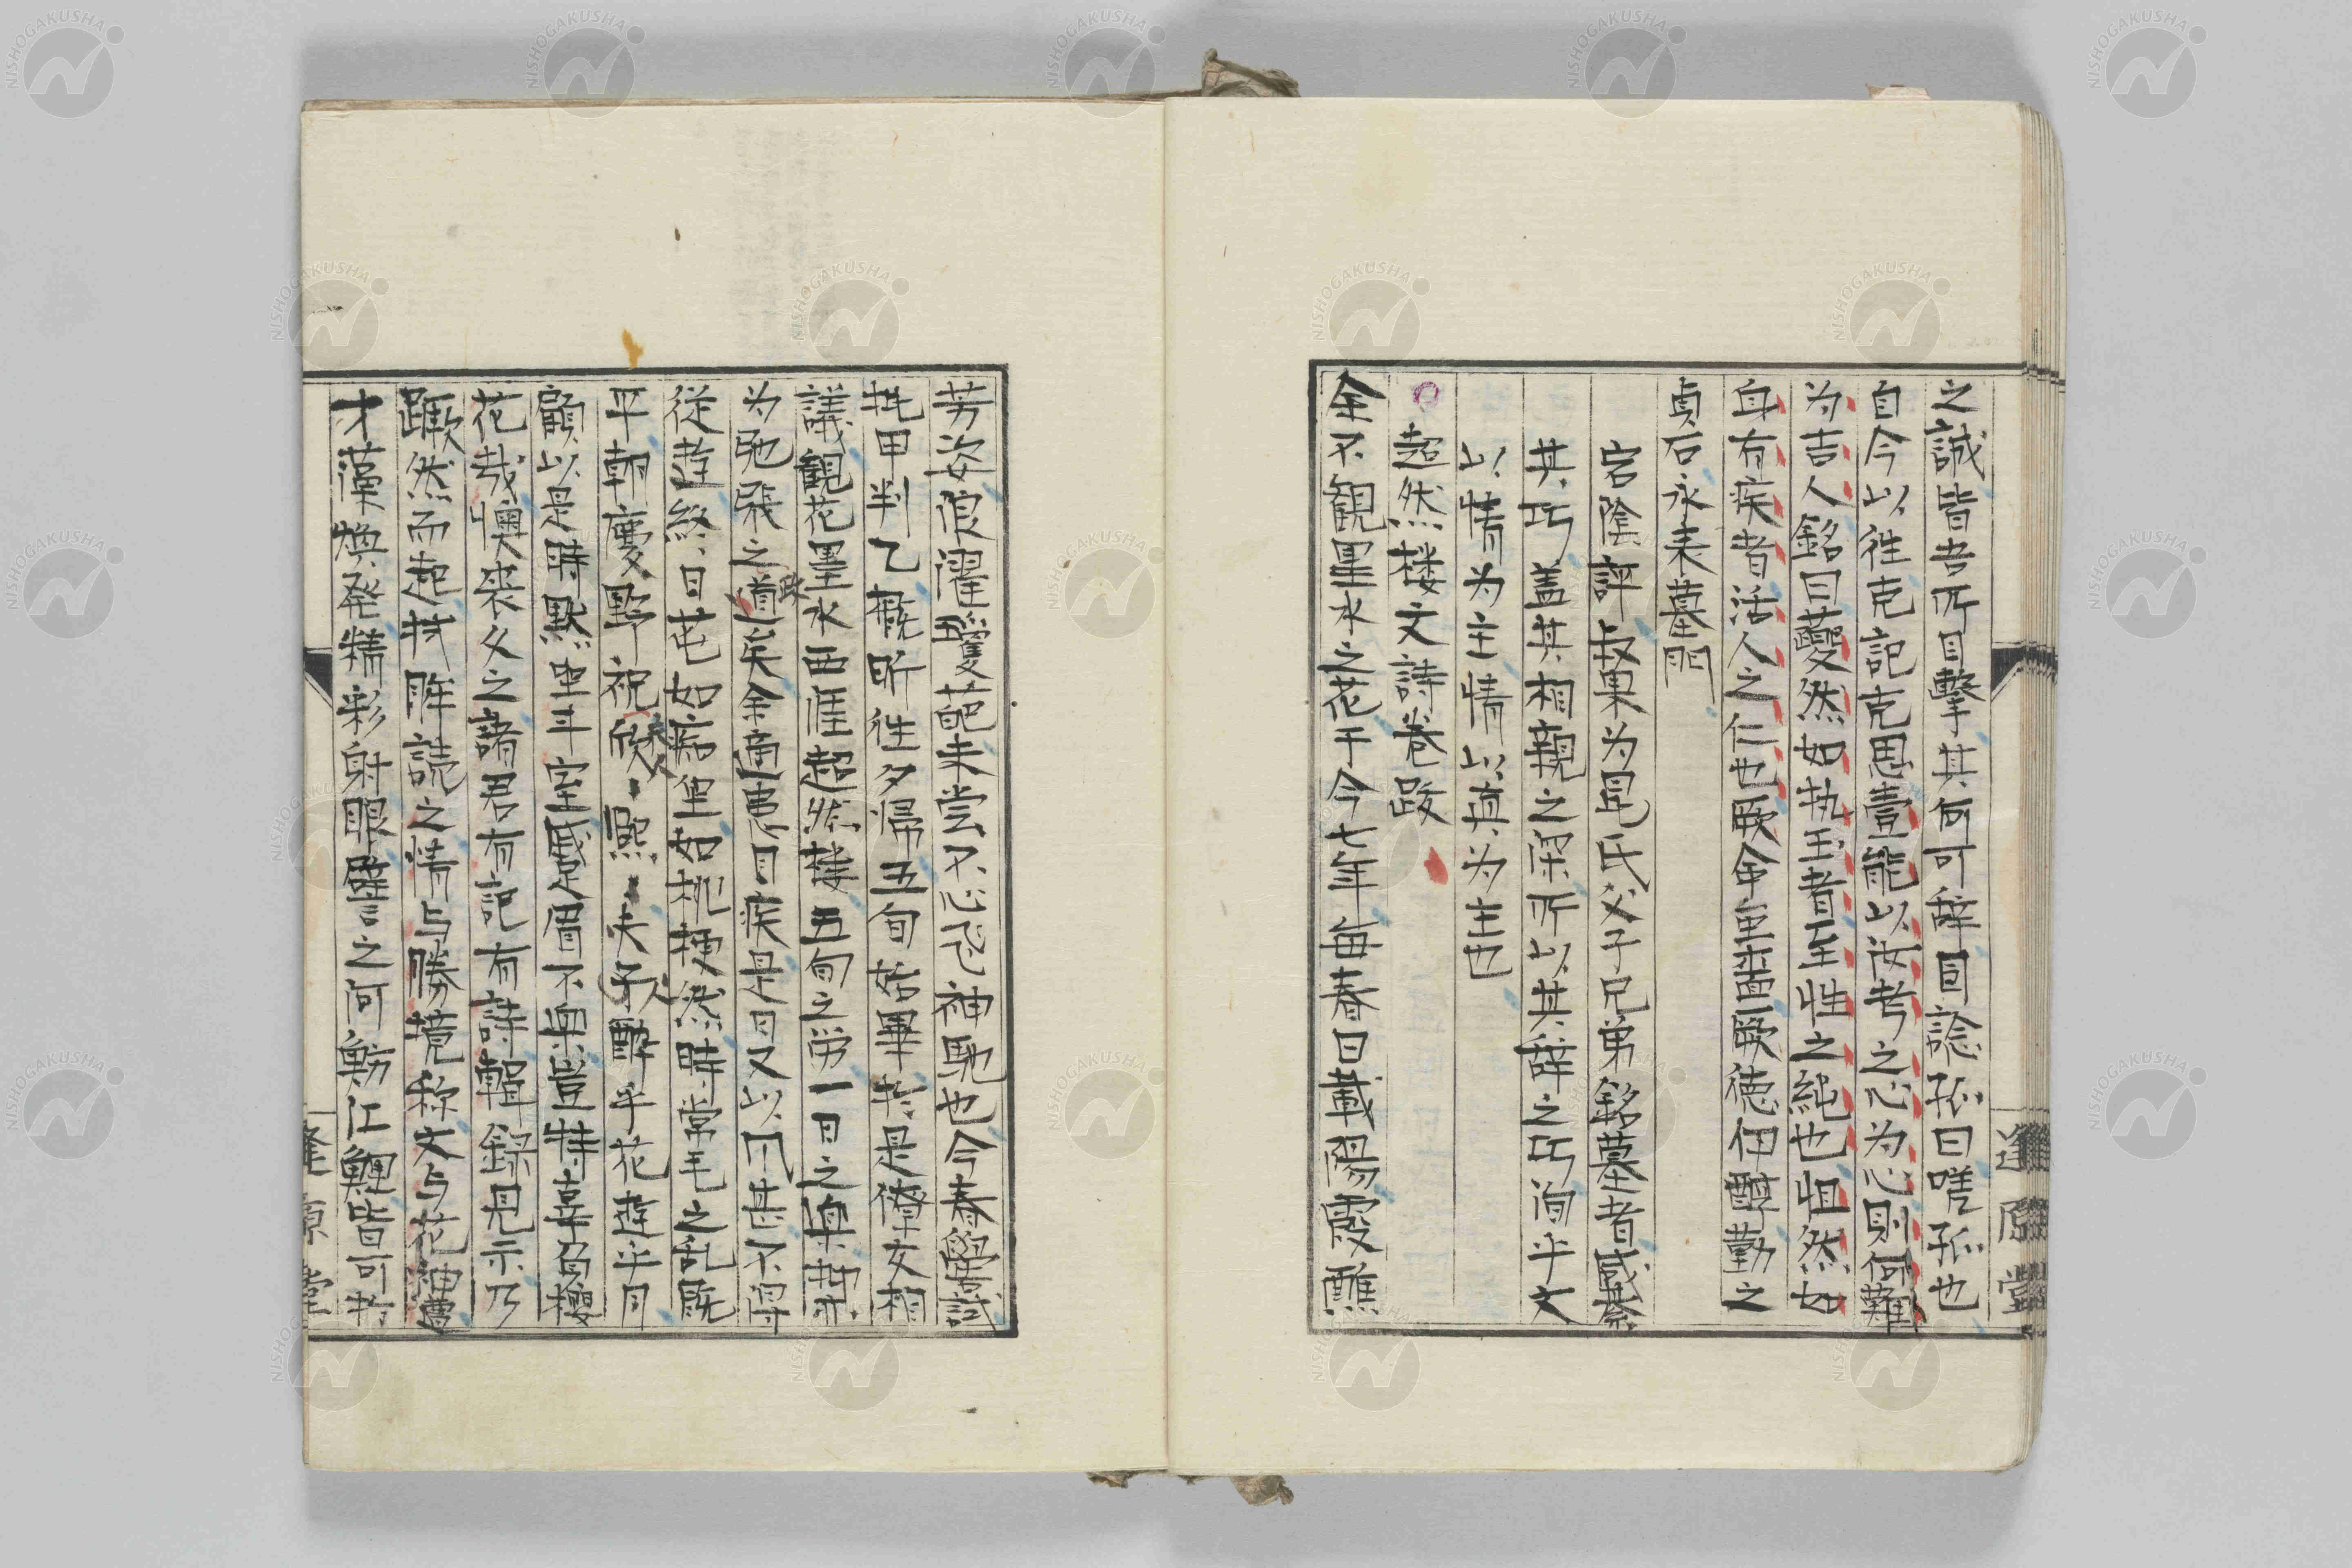 之誠皆吾所目擊其何可辭因諗孤曰嗟孤也
自今以往克記克思壹能以汝考之心為心則何難
為吉人銘曰夔然如執玉者至性之純也怛然如
身有疾者活人之仁也厥命雖嗇厥徳伹醇勤之
貞石永表墓門
宕陰評叔果為昆氏父子兄弟銘墓者咸綦
其巧蓋其相親之深所以其辭之巧洵乎文
以情為主情以真為主也
超然楼文詩巻跋
余不觀墨水之花于今七年毎春日載陽霞醮
芳姿浪濯瓊葩未嘗不心飛神馳也今春學試
批甲判乙輒昕往夕歸五旬始畢於是僚友相
議觀花墨水西涯超然楼五旬之勞一日之樂
為弛張之道矣余適患目疾是日又以門甚不得
從遊終日茫如痴坐如桃梗然時常毛之乱既
平朝慶野祝熙熙夫子醉乎花遊乎月
顧以是時黙坐斗室蹙眉不樂豈特辜負櫻
花哉懊喪久之諸君有記有詩輯録見示乃
蹶然而起拭眸読之情与勝境称文与花神遭
才藻煥発精彩射眼譬之河魴江鯉皆可於
逢原堂